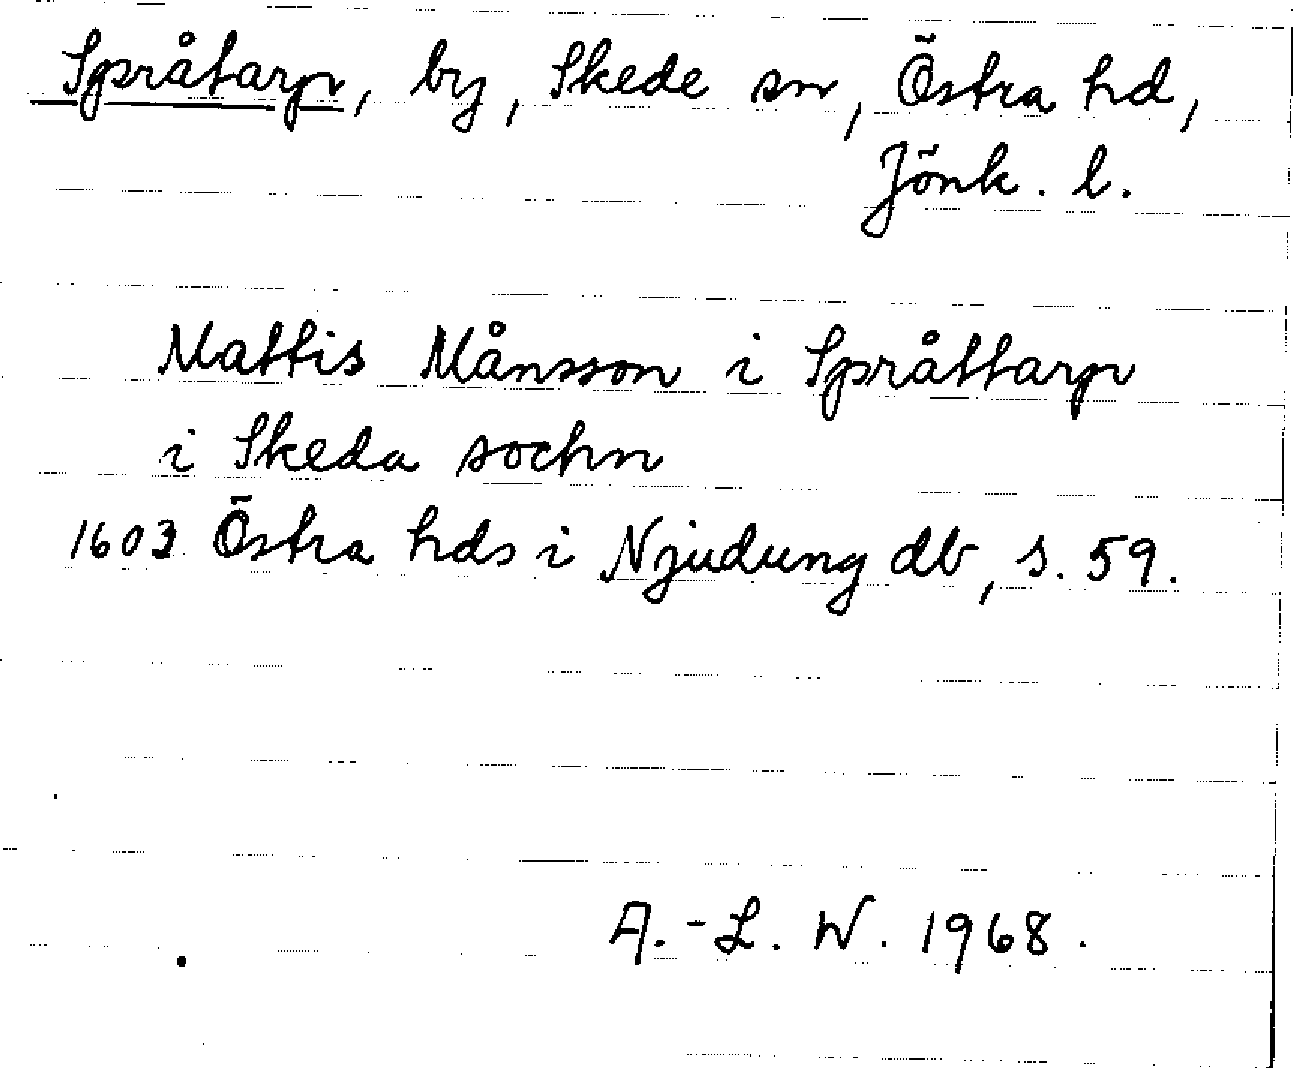 Språtarp, by, Skede sn, Östra hd,
Jönk. l.
Mattis Månsson i Språttarp
i Skeda sochn
1603 Östra hds i Njudung db, s. 59.
A.-L. W. 1968.